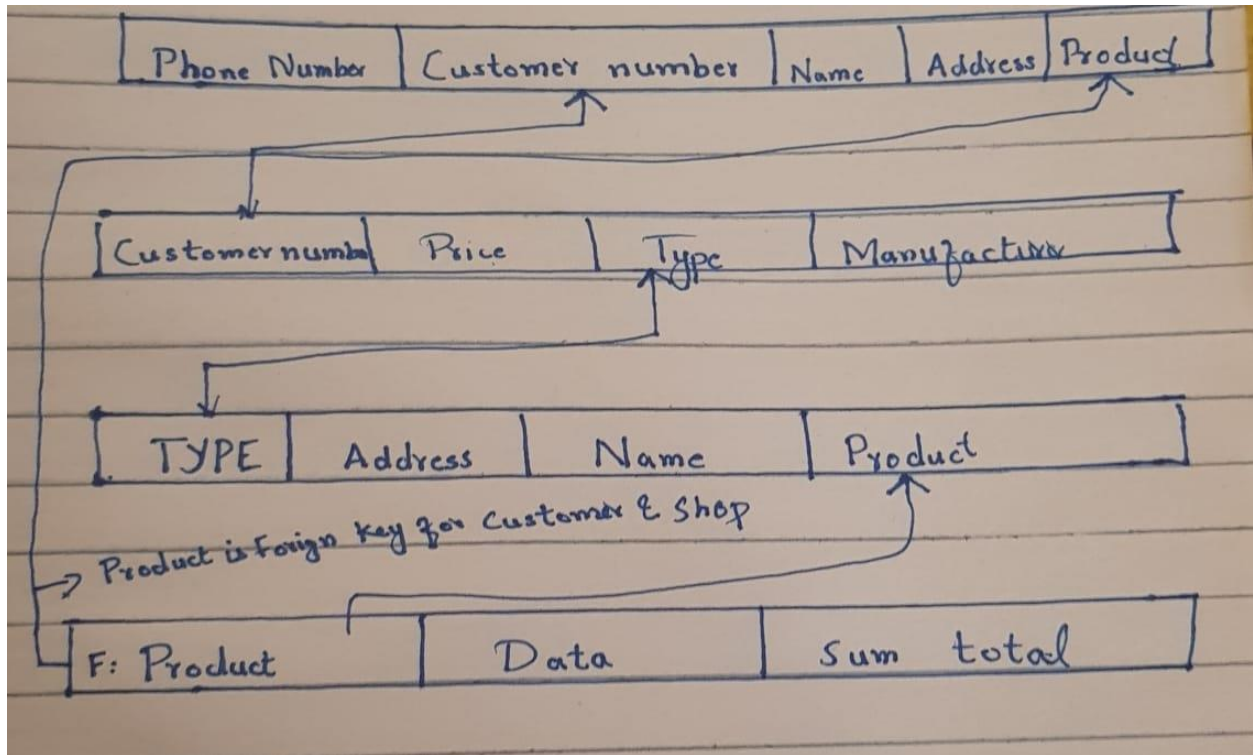 Phone Number Customer number Name Address Product
Customer numbe Price Type Manufacturer
TYPE Address Name Product
Product is Forign Key for Customer & Shop
F: Product Data Sum total